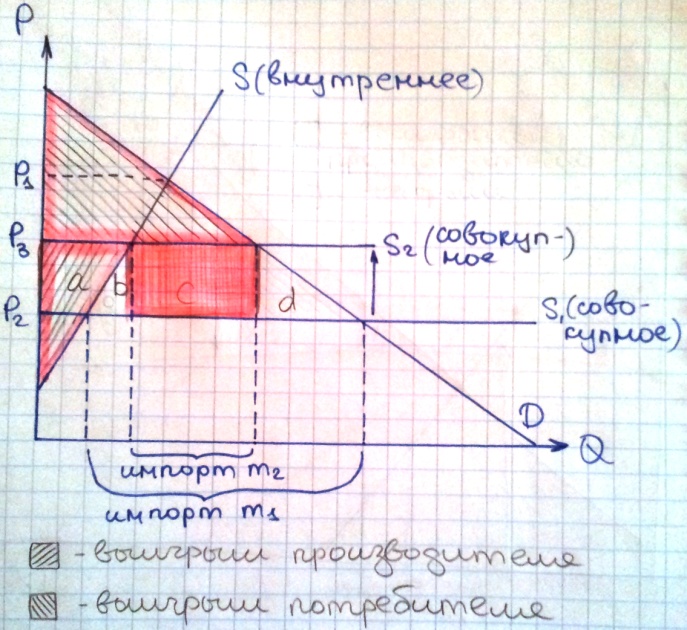 P
S (внутреннее)
P1
P3
S2 (совокуп-)
ное
a
b
c
d
P2
S1 (сово-
купное)
D
Q
импорт m2
импорт m1
- выигрыш производителя
- выигрыш потребителя